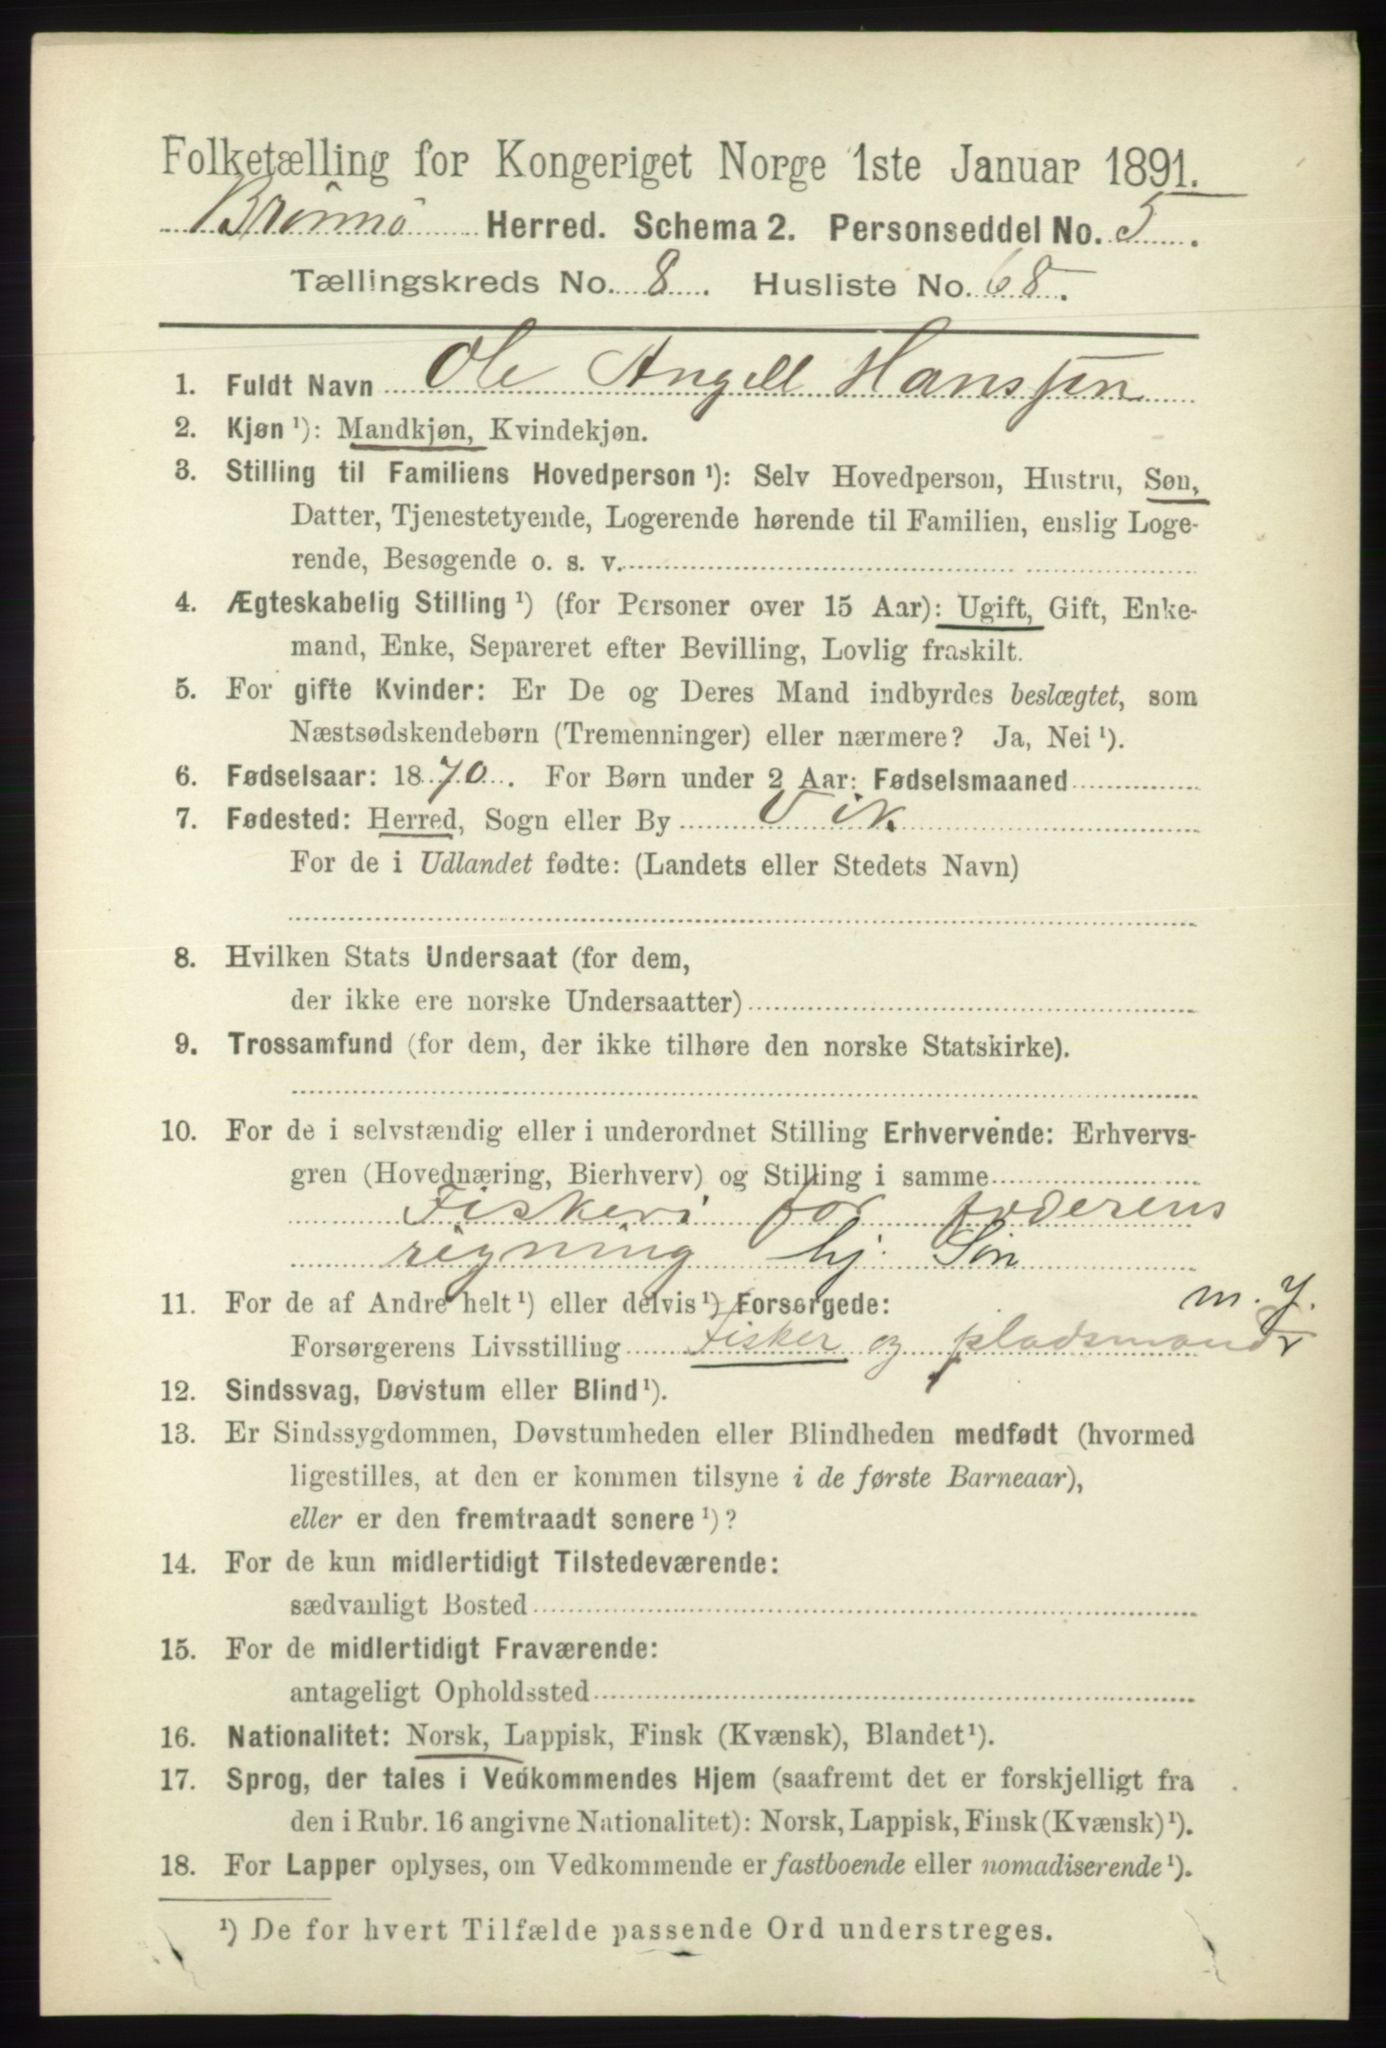 Folketælling for Kongeriget Norge 1ste Januar 1891.
Brønnø Herred. Schema 2. Personseddel No. 5.
Tællingskreds No. 8. Husliste No. 68.
1. Fuldt Navn Ole Angell Hanssen
2. Kjøn ¹): Mandkjøn, Kvindekjøn.
3. Stilling til Familiens Hovedperson ¹): Selv Hovedperson, Hustru, Søn,
Datter, Tjenestetyende, Logerende hørende til Familien, enslig Loge-
rende, Besøgende o. s. v.
4. Ægteskabelig Stilling ¹) (for Personer over 15 Aar): Ugift, Gift, Enke-
mand, Enke, Separeret efter Bevilling, Lovlig fraskilt.
5. For gifte Kvinder: Er De og Deres Mand indbyrdes beslægtet, som
Næstsødskendebørn (Tremenninger) eller nærmere? Ja, Nei ¹).
6. Fødselsaar: 1870. For Børn under 2 Aar: Fødselsmaaned
7. Fødested: Herred, Sogn eller By Vik
For de i Udlandet fødte: (Landets eller Stedets Navn)
8. Hvilken Stats Undersaat (for dem,
der ikke ere norske Undersaatter)
9. Trossamfund (for dem, der ikke tilhøre den norske Statskirke).
10. For de i selvstændig eller i underordnet Stilling Erhvervende: Erhvervs-
gren (Hovednæring, Bierhverv) og Stilling i samme
Fiskeri for faderens
regning hj. Søn
11. For de af Andre helt ¹) eller delvis ¹) Forsørgede: m. J.
Forsørgerens Livsstilling Fisker og pladsmand
12. Sindssvag, Døvstum eller Blind ¹).
13. Er Sindssygdommen, Døvstumheden eller Blindheden medfødt (hvormed
ligestilles, at den er kommen tilsyne i de første Barneaar),
eller er den fremtraadt senere ¹)?
14. For de kun midlertidigt Tilstedeværende:
sædvanligt Bosted
15. For de midlertidigt Fraværende:
antageligt Opholdssted
16. Nationalitet: Norsk, Lappisk, Finsk (Kvænsk), Blandet ¹).
17. Sprog, der tales i Vedkommendes Hjem (saafremt det er forskjelligt fra
den i Rubr. 16 angivne Nationalitet): Norsk, Lappisk, Finsk (Kvænsk) ¹).
18. For Lapper oplyses, om Vedkommende er fastboende eller nomadiserende ¹).
¹) De for hvert Tilfælde passende Ord understreges.